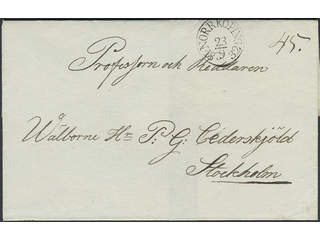 NORRKÖPING
23
9
45.
Professorn och Riddaren
Wälborne Hr P: G: Cederskjöld
Stockholm